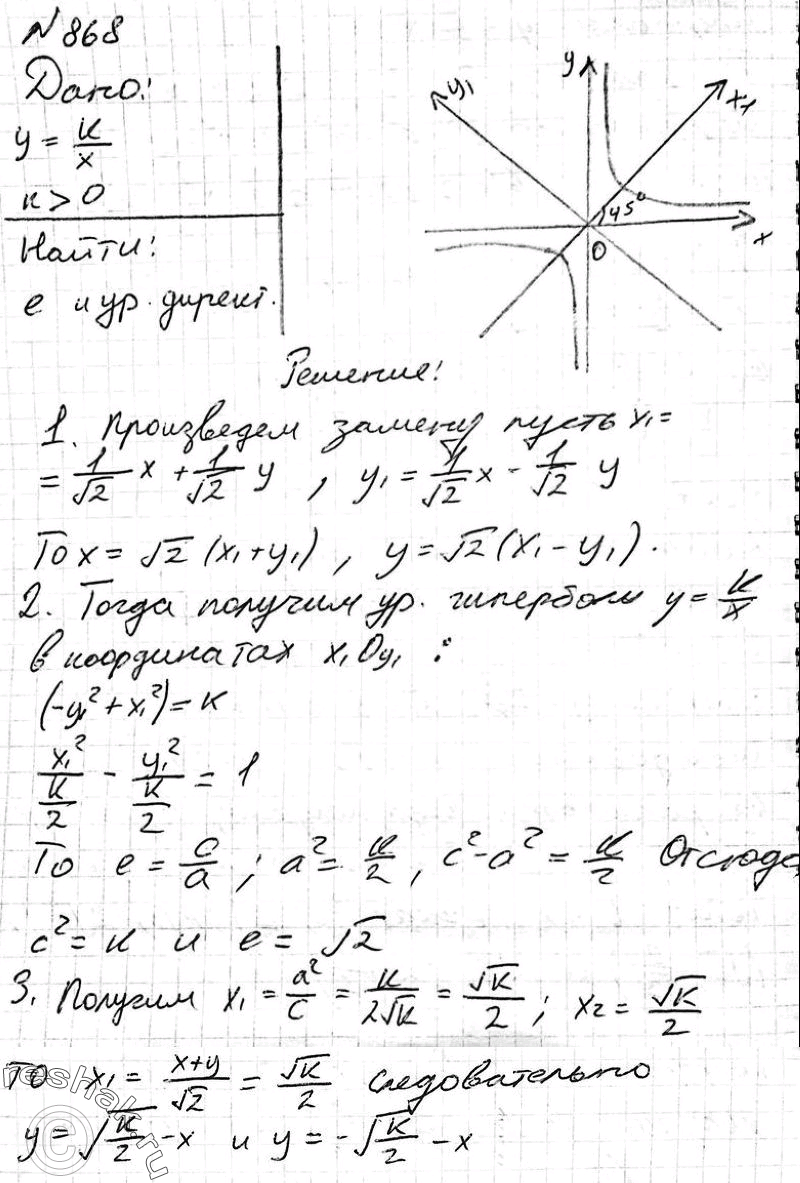 N868
Дано:
y = k/x
k > 0
Найти:
e и ур. директ.
y
y₁
x₁
45°
x
O
Решение:
1. Произведем замену пусть x₁ =
= 1/√2 x + 1/√2 y , y₁ = 1/√2 x - 1/√2 y
То x = √2 (x₁+y₁) , y = √2 (x₁ - y₁).
2. Тогда получим ур. гиперболы y = k/x
в координатах x₁Oy₁ :
(-y₁² + x₁²) = k
x₁²/(k/2) - y₁²/(k/2) = 1
То e = c/a ; a² = k/2 , c² - a² = k/2 Отсюда,
c² = k и e = √2
3. Получим x₁ = a²/c = k/2√k = √k/2 ; x₂ = √k/2
то x₁ = x+y/√2 = √k/2 следовательно
y = √(k/2) - x и y = -√(k/2) - x
© reshak.ru